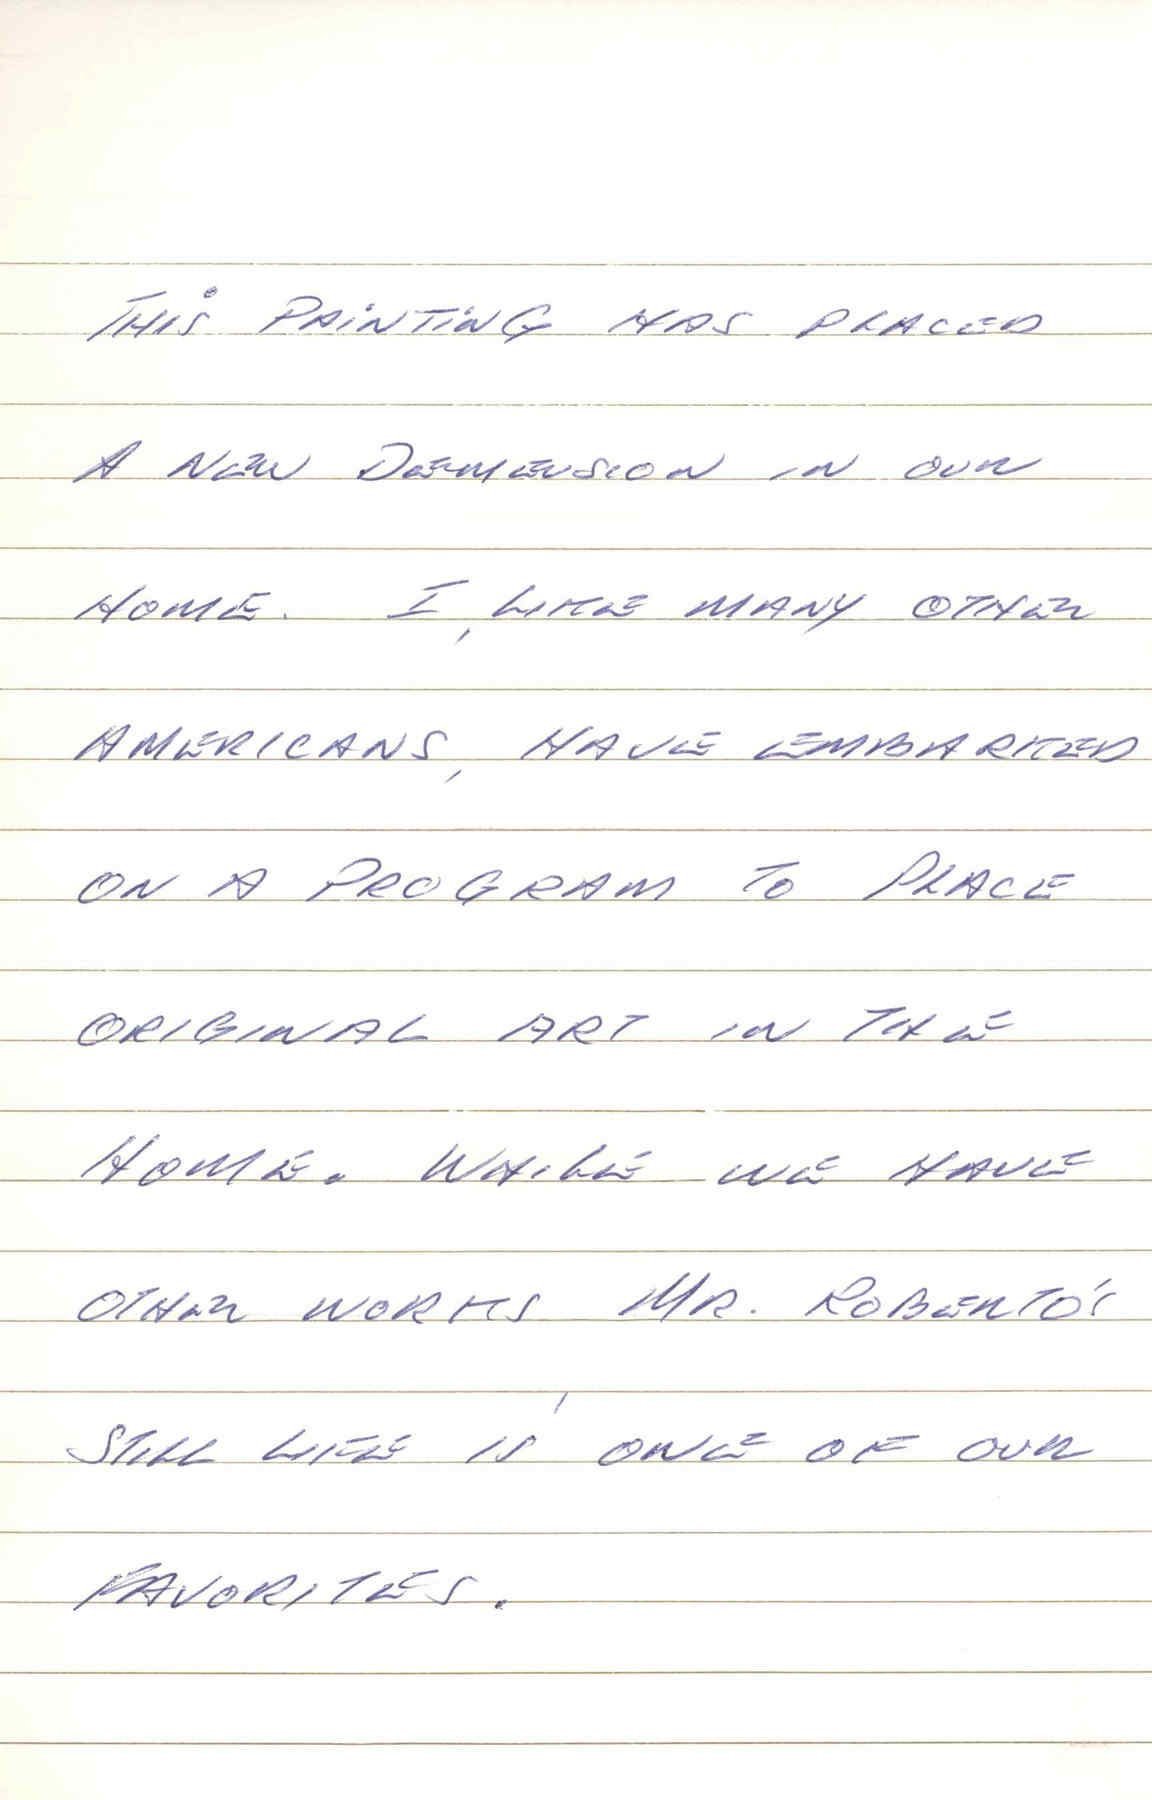 THIS PAINTING HAS PLACED
A NEW DEMENSION IN OUR
HOME. I, LIKE MANY OTHER
AMERICANS, HAVE EMBARKED
ON A PROGRAM TO PLACE
ORIGINAL ART IN THE
HOME. WHILE WE HAVE
OTHER WORKS MR. ROBERTO'S
STILL LIFE IS ONE OF OUR
FAVORITES.